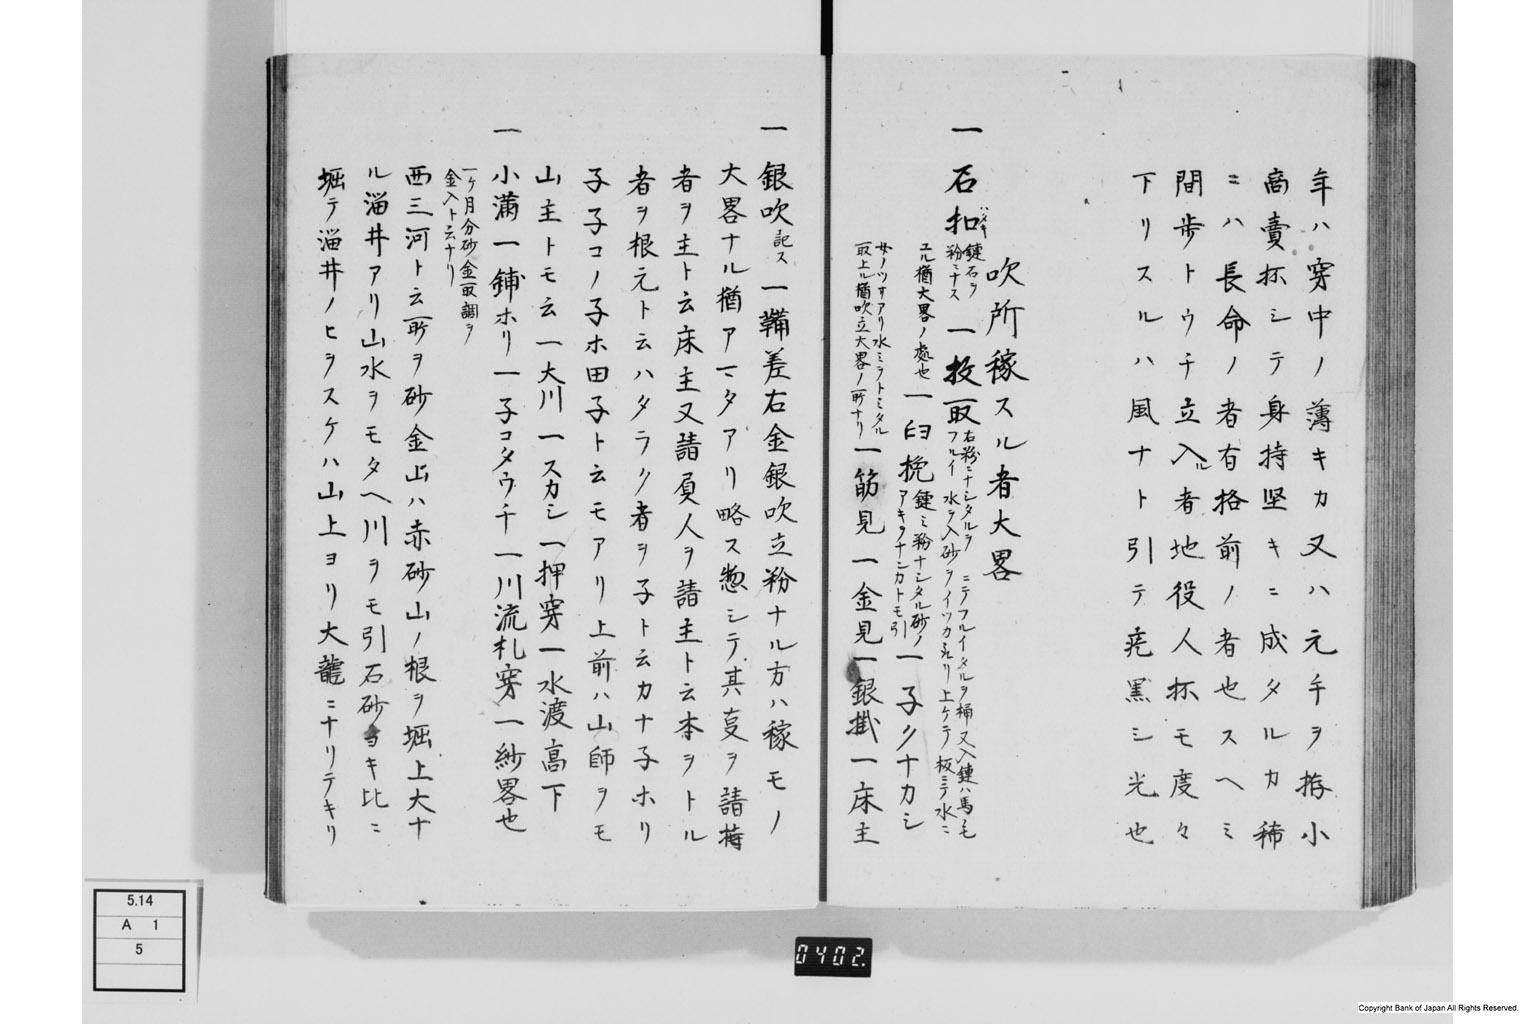 年ハ穿中ノ薄キカ又ハ元手ヲ拵小
商賣抔シテ身持堅キニ成タルカ稀
ニハ長命ノ者有格前ノ者也スヘミ
間歩トウチ立入ル者地役人抔モ度々
下リスルハ風ナト引テ疵黒シ光也
吹所稼スル者大畧
一 石扣 ハタキ 鏈石ヲ粉ミナス 一 扱取
右粉ニナシタルヲ
フルイ 水ヲ入砂ヲイツカ
板ミテ水ニ
ユル猶大畧ノ處也 一 臼挽 鏈ミ粉ナシタル砂ノ
アキヲナンカトモ引 一 子クナカシ
取上ル猶吹立大畧ノ所ナリ 一 筋見 一 金見 一 銀掛 一 床主
一 銀吹 記ス 一 鞴差右金銀吹立粉ナル方ハ稼モノ
大畧ナル猶アマタアリ略ス惣シテ其㕝ヲ請
者ヲ主ト云床主又請負人ヲ請主ト云本ヲトル
者ヲ根元ト云ハタラク者ヲ子ト云カナ子ホリ
子子コノ子ホ田子ト云モアリ上前ハ山師ヲモ
山主トモ云 一 大川 一 スカシ 一 押穿 一 水渡高下
一 小満 一 鋪ホリ 一 子コタウチ 一 川流札穿 一 紗畧也
一ケ月分砂金取調ヲ
金入ト云ナリ
西三河ト云所ヲ砂金山ハ赤砂山ノ根ヲ堀上大ナ
ル溜井アリ山水ヲモタヘ川ヲモ引石砂ヨキ比ニ
堀テ溜井ノヒヲスケハ山上ヨリ大龍ニナリテキリ
5.14
A 1
5
0402.
Copyright Bank of Japan All Rights Reserved.